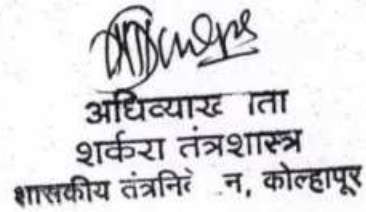 अधिव्याख्याता
शर्करा तंत्रशास्त्र
शासकीय तंत्रनिकेतन, कोल्हापूर